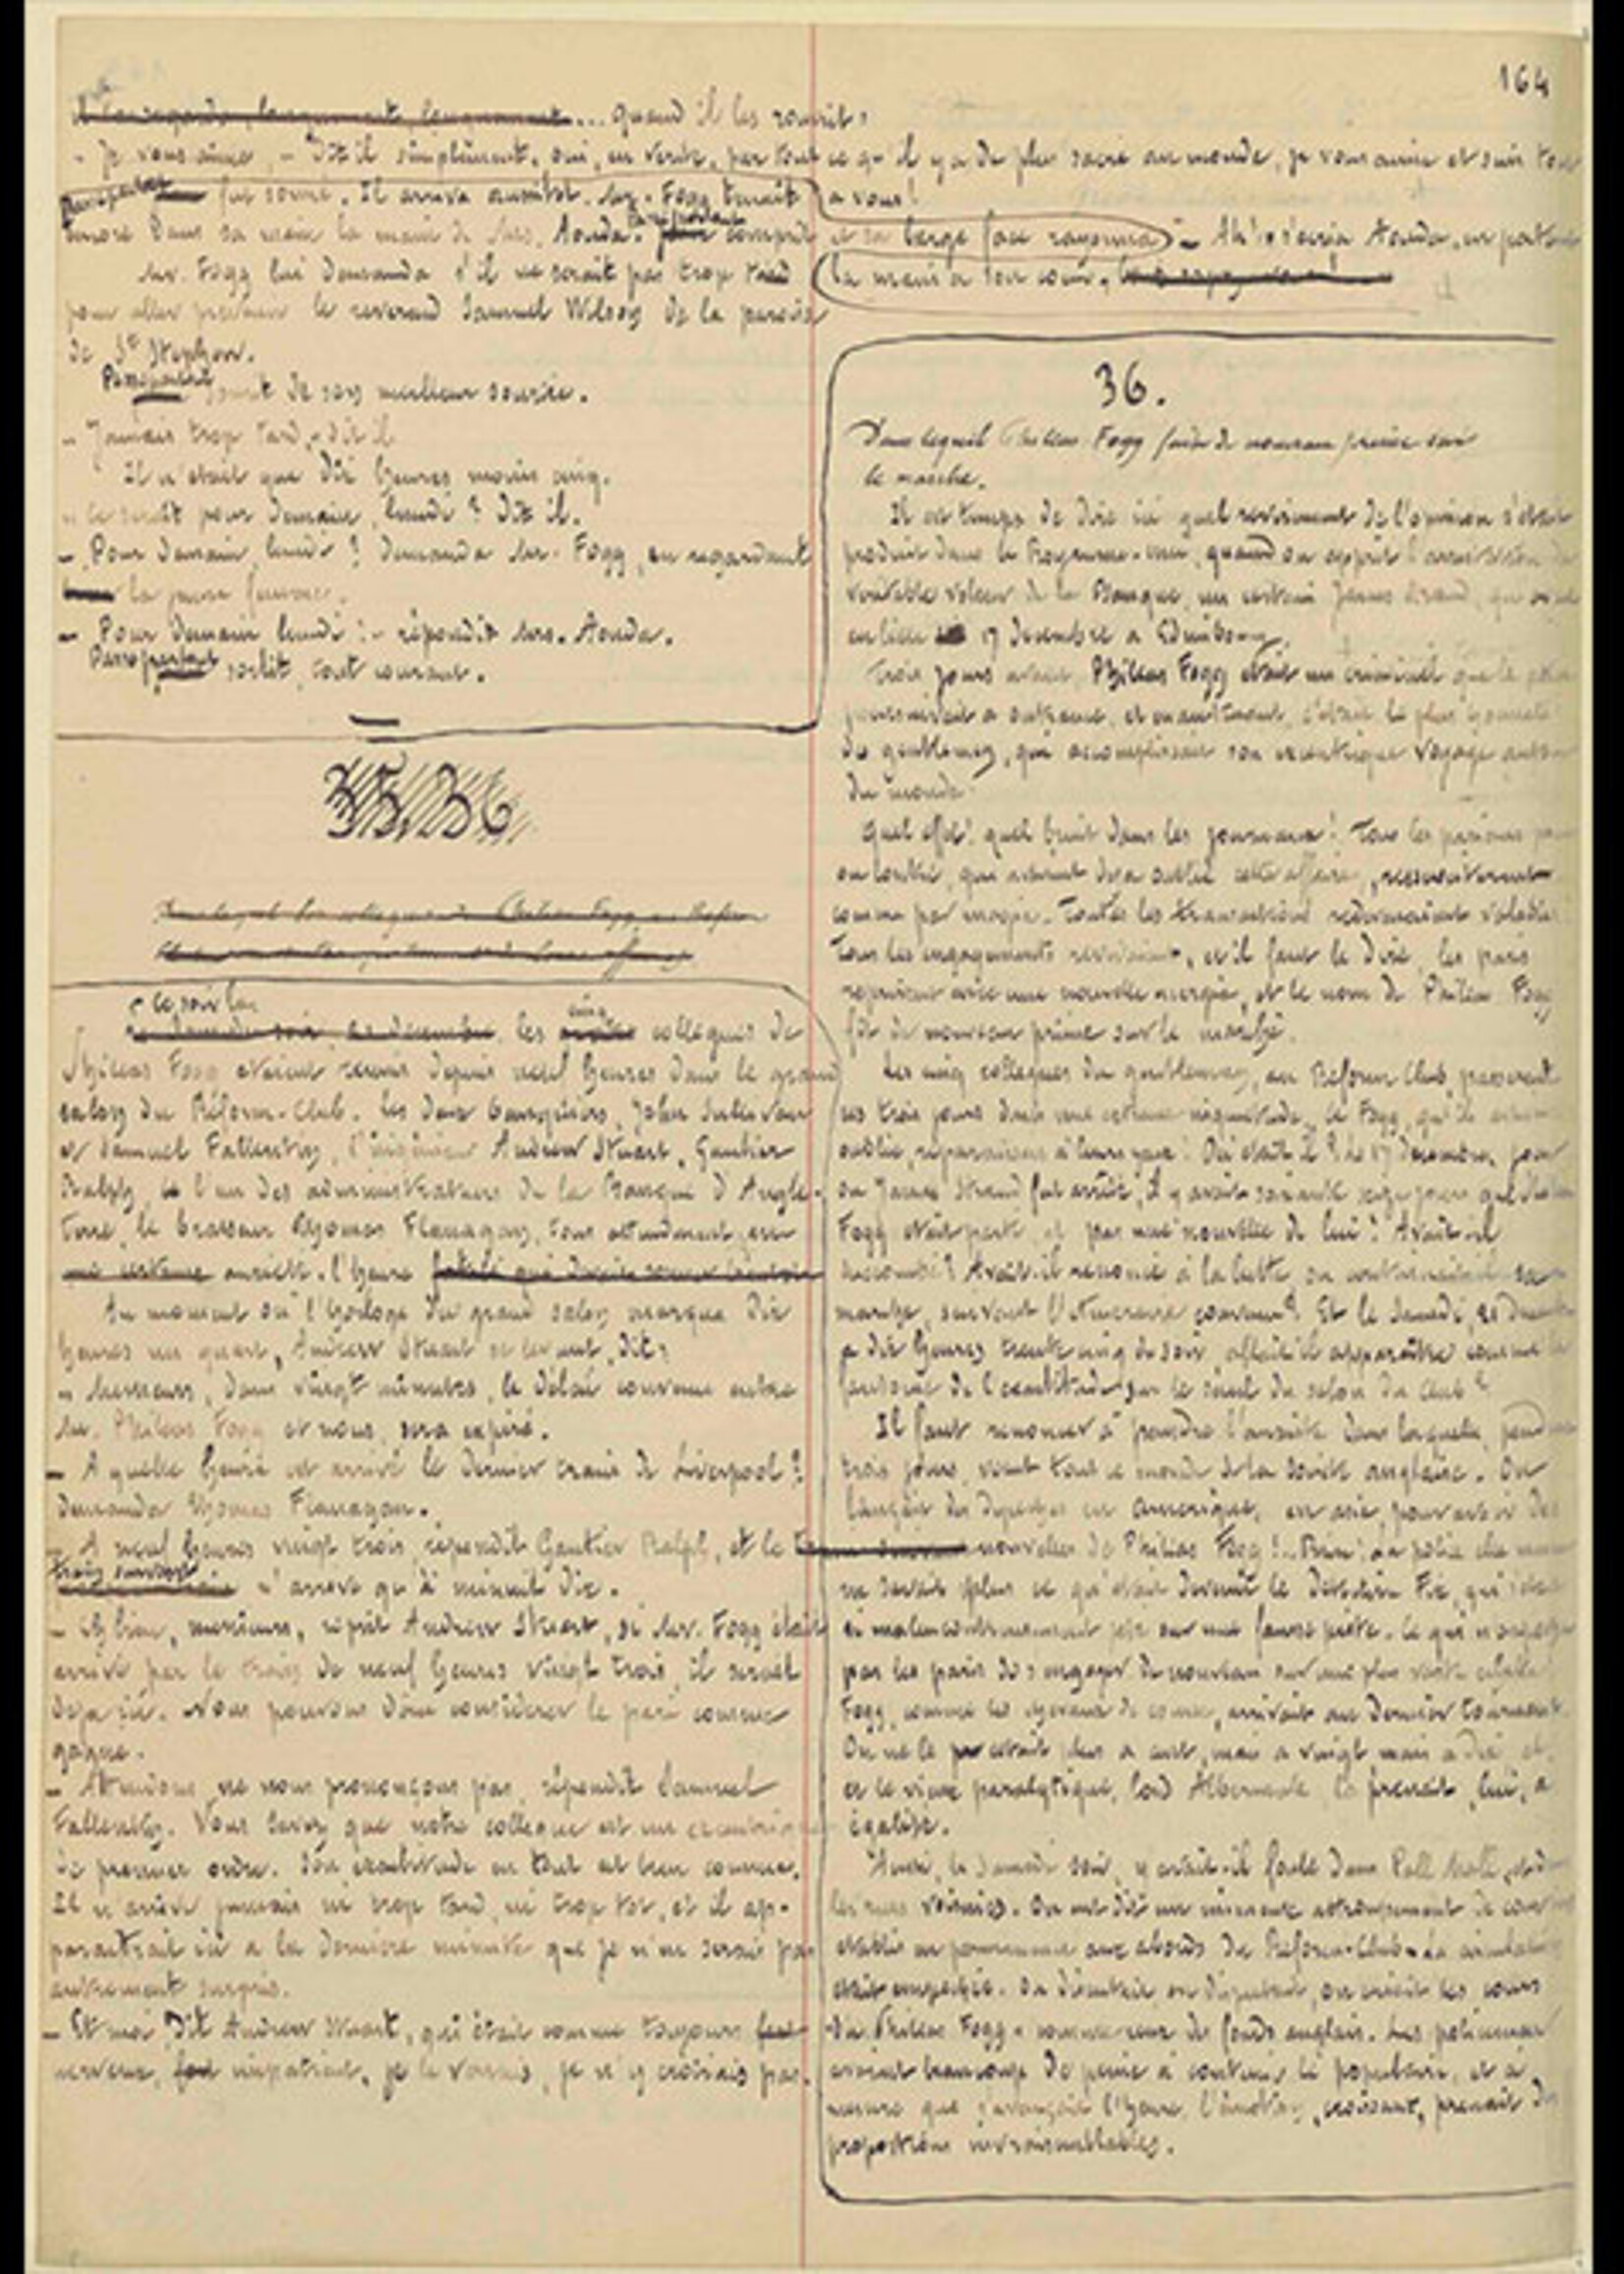 164
... quand il les rouvrit :
- Je vous aime, - dit il simplement. oui, en verité, par tout ce qu'il y a de plus sacré au monde, je vous aime et suis tout
à vous !
- Ah ! s'écria Aouda, en portant
la main à son cœur.
Passepartout fut sonné. Il arriva aussitôt. Mr. Fogg tenait
encore dans sa main la main de Mrs. Aouda. Passepartout comprit et sa large face rayonna
Mr. Fogg lui demanda s'il ne serait pas trop tard
pour aller prévenir le reverend Samuel Wilson de la paroisse
de St Stephen.
Passepartout sourit de son meilleur sourire.
- Jamais trop tard, - dit il
Il n'etait que dix heures moins cinq.
- Ce serait pour demain, lundi ? dit il.
- Pour demain lundi ? demanda Mr. Fogg, en regardant
la jeune femme.
- Pour demain lundi ! - répondit Mrs. Aouda.
Passepartout sortit, tout courant.
Ce soir là
les cinq collègues de
Phileas Fogg etaient réunis depuis neuf heures dans le grand
salon du Réform-Club. Les deux banquiers, John Sullivan
et Samuel Fallentin, l'ingénieur Andrew Stuart, Gautier
Ralph, l'un des administrateurs de la Banque d'Angle-
terre, le brasseur Thomas Flanagan, tous attendaient avec
anxiété. l'heure
Au moment où l'horloge du grand salon marqua dix
heures un quart, Andrew Stuart se levant, dit :
- Messieurs, dans vingt minutes, le délai convenu entre
Mr. Phileas Fogg et nous, sera expiré.
- A quelle heure est arrivé le dernier train de Liverpool ?
demanda Thomas Flanagan.
- A neuf heures vingt trois, répondit Gautier Ralph, et le
train suivant n'arrive qu'à minuit dix.
- Eh bien, messieurs, reprit Andrew Stuart, si Mr. Fogg était
arrivé par le train de neuf heures vingt trois, il serait
déja ici. Nous pouvons donc considérer le pari comme
gagné.
- Attendons, ne nous prononçons pas, répondit Samuel
Fallentin. Vous savez que notre collègue est un excentrique
de premier ordre. Son exactitude en tout est bien connue.
Il n'arrive jamais ni trop tard, ni trop tôt, et il ap-
paraitrait ici à la dernière minute que je n'en serais pas
autrement surpris.
- Et moi, dit Andrew Stuart, qui était comme toujours
nerveux, impatient, je le verrais, je n'y croirais pas.
36.
Dans lequel Phileas Fogg fait de nouveau prime sur
le marché.
Il est temps de dire ici quel revirement de l'opinion s'était
produit dans le Royaume-uni, quand on apprit l'arrestation du
véritable voleur de la Banque, un certain James Strand, qui avait
eu lieu 17 décembre à Edimbourg.
Trois jours avant, Phileas Fogg était un criminel que la police
poursuivait à outrance, et maintenant, c'était le plus honnête
des gentlemen, qui accomplissait son excentrique voyage autour
du monde.
Quel effet, quel bruit dans les journaux ! Tous les parieurs pour
ou contre, qui avaient déja oublié cette affaire, ressuscitèrent
comme par magie. Toutes les transactions redevenaient valables
Tous les engagements revivaient, et il faut le dire, les paris
reprirent avec une nouvelle energie, et le nom de Phileas Fogg
fit de nouveau prime sur le marché.
Les cinq collègues du gentleman, au Réform Club, passèrent
ces trois jours dans une certaine inquiétude. Ce Fogg, qu'ils avaient
oublié, réparaissait à leurs yeux ! Où était il ? Le 17 décembre, jour
où James Strand fut arrêté, il y avait soixante seize jours que Phileas
Fogg était parti, et pas une nouvelle de lui ! Avait-il
succombé ? Avait-il renoncé à la lutte, ou continuait-il sa
marche, suivant l'itineraire convenu ? Et le Samedi, 21 décembre
à dix heures trente cinq du soir, allait-il apparaître comme le
de l'exactitude sur le seuil du salon du Club ?
Il faut renoncer à peindre l'anxiété dans laquelle, pendant
trois jours, vécut tout ce monde de la société anglaise. On
lançait des dépêches en Amérique, en asie, pour avoir des
nouvelles de Phileas Fogg ! Rien. La police elle même
ne savait plus ce qu'était devenu le détective Fix, qui s'était
si malencontreusement jeté sur une fausse piste. Ce qui n'empêcha
pas les paris de s'engager de nouveau sur une plus vaste echelle.
Fogg, comme les chevaux de course, arrivait au dernier tournant.
On ne le cotait plus à cent, mais à vingt mais à dix,
et le vieux paralytique, lord Albermale le prenait, lui, à
égalité.
Aussi, le Samedi soir, y avait-il foule dans Pall Mall, et dans
les rues voisines. On eut dit un immense attroupement de courtiers
établis en permanence aux abords de Réform-Club. La circulation
était empêchée. On discutait, on disputait, on criait les cours
du Phileas Fogg, comme ceux des fonds anglais. Les policemen
avaient beaucoup de peine à contenir le populaire, et à
mesure que s'avançait l'heure, l'émotion, croissant, prenait des
proportions invraisemblables.